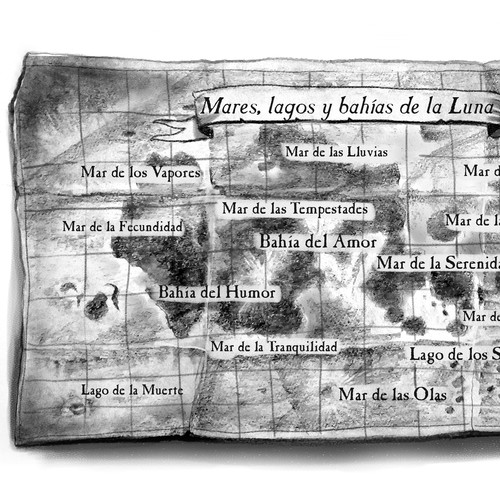 Mares, lagos y bahías de la Luna
Mar de las Lluvias
Mar de los Vapores
Mar d
Mar de las Tempestades
Mar de la Fecundidad
Mar de l
Bahía del Amor
Mar de la Serenida
Bahía del Humor
Mar de
Mar de la Tranquilidad
Lago de los S
Lago de la Muerte
Mar de las Olas